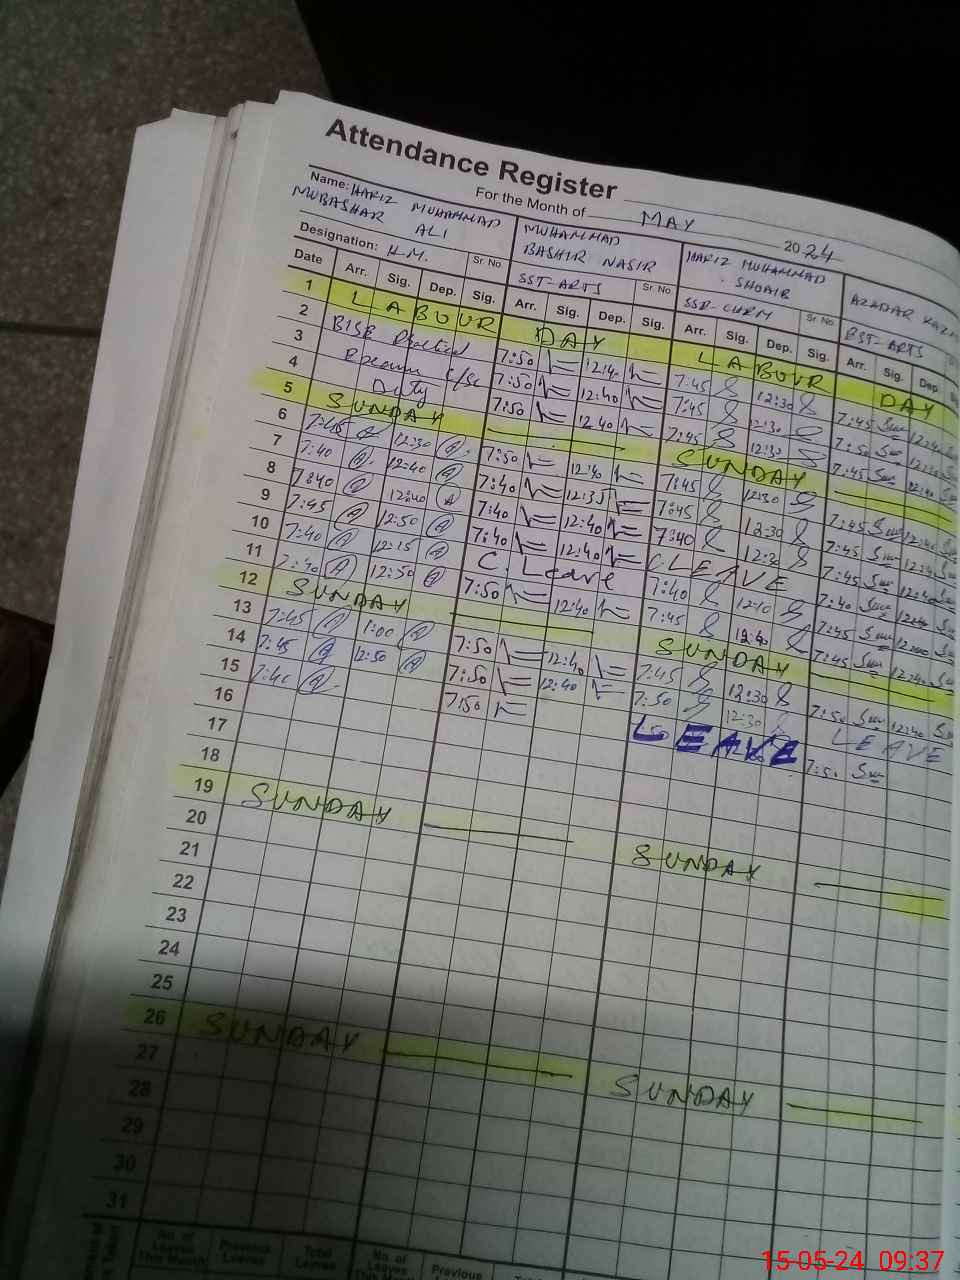 Attendance Register
For the Month of MAY 2024
Name: HAFIZ MUHAMMAD
MUBASHAR ALI
Designation: H.M. Sr. No.
MUHAMMAD
BASHIR NASIR
SST-ARTS Sr. No.
HAFIZ MUHAMMAD
SHOAIB
Sr. No.
AZADAR
Date Arr. Sig. Dep. Sig. Arr. Sig. Dep. Sig. Arr. Sig. Dep. Sig. Arr. Sig. Dep.
1 LABOUR DAY LABOUR DAY
2 BISE Practical 7:50 12:40 7:45 12:30 7:45
3 7:50 12:40 7:45 12:30 7:50
4 Duty 7:50 12:40 7:45 12:30 7:45
5 SUNDAY SUNDAY
6 7:45 12:30 7:50 12:40 7:45 12:30 7:45
7 7:40 12:40 7:40 7:45 12:30 7:45
8 7:40 12:40 7:40 12:40 7:40 12:30 7:45
9 7:45 12:50 7:40 12:40 C LEAVE 7:40
10 7:40 12:15 C. Leave 7:40 12:40 7:45
11 7:40 12:50 7:50 12:40 7:45 12:40 7:45
12 SUNDAY SUNDAY
13 7:45 1:00 7:50 12:40 7:45 12:30 7:50 12:40
14 7:45 12:50 7:50 12:40 7:50 12:30 LEAVE
15 7:40 7:50 LEAVE 7:50
16
17
18
19 SUNDAY SUNDAY
20
21
22
23
24
25
26 SUNDAY SUNDAY
27
28
29
30
31
No. of Leaves This Month Previous Leaves Total Leaves No. of Leaves This Month Previous
15-05-24 09:37